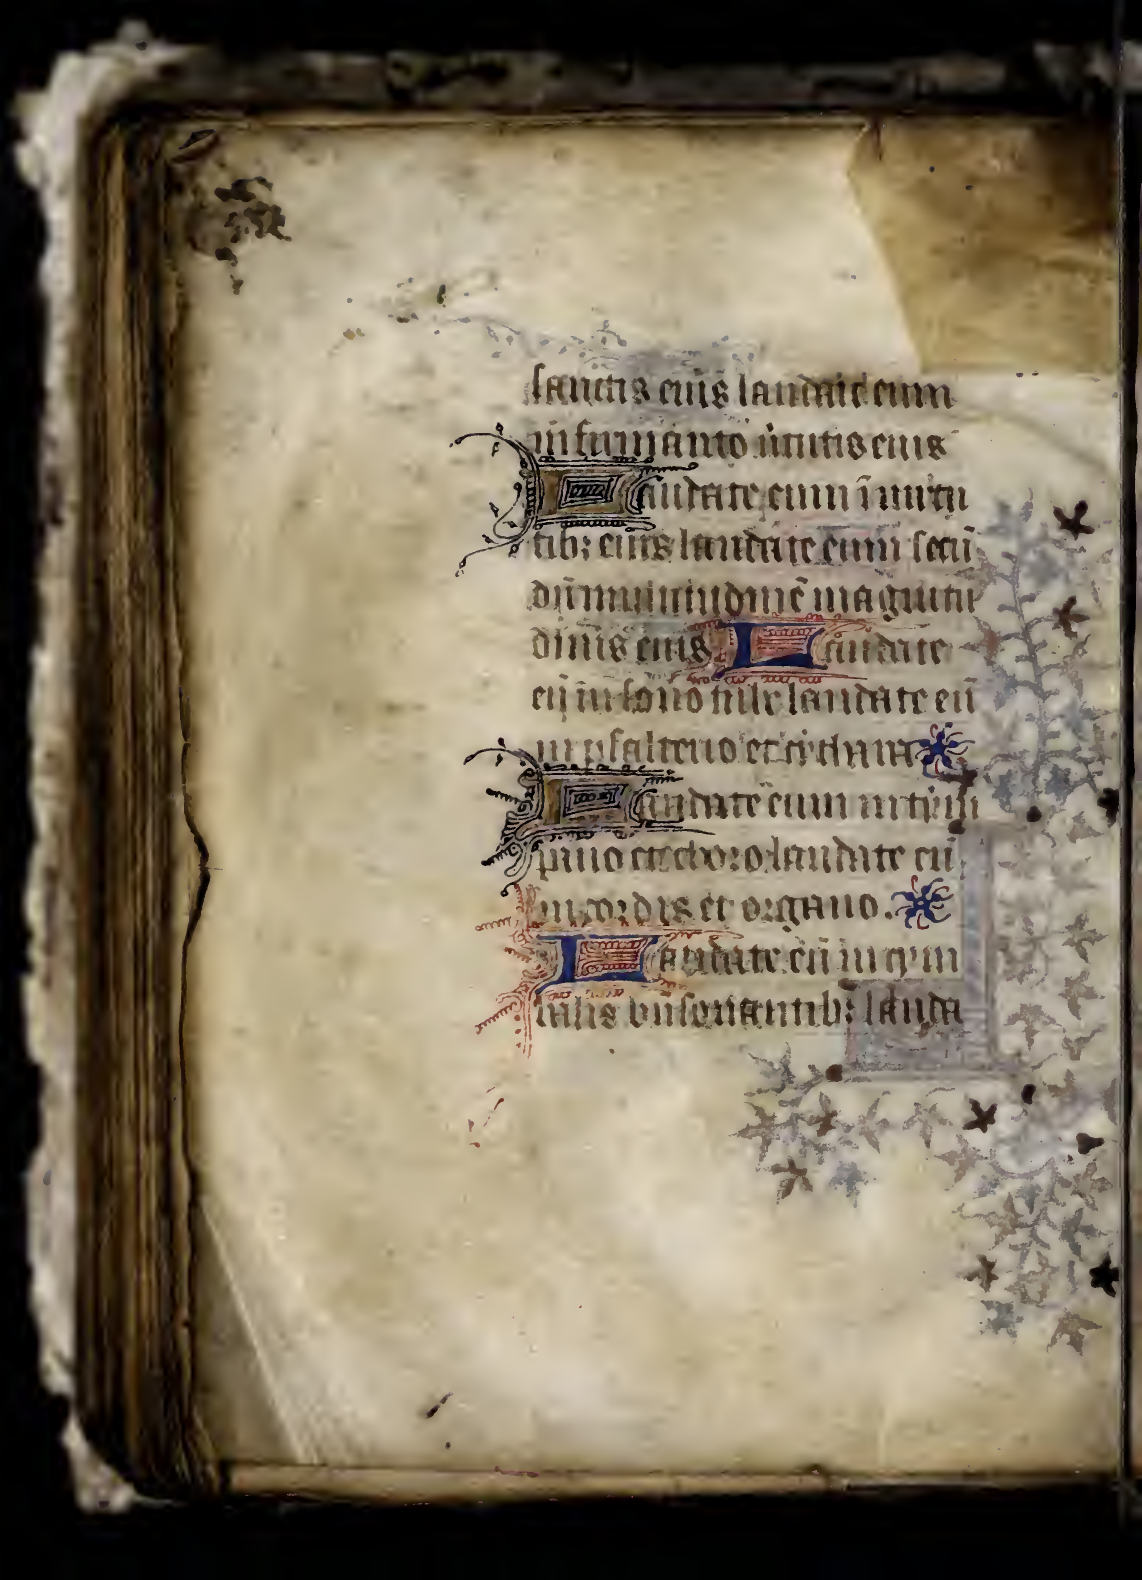 sanctis eius laudate eum
in firmamento ūtutis eius
Laudate eum ī uirtu
tibꝫ eius laudate eum secū
dū multitudinē magnitu
dinis eius Laudate
eū in sono tube laudate eū
in psalterio et cythara
Laudate eum in tym
pano et choro laudate eū
in cordis et organo.
Laudate eū in cym
balis bn̄sonantibꝫ lauda